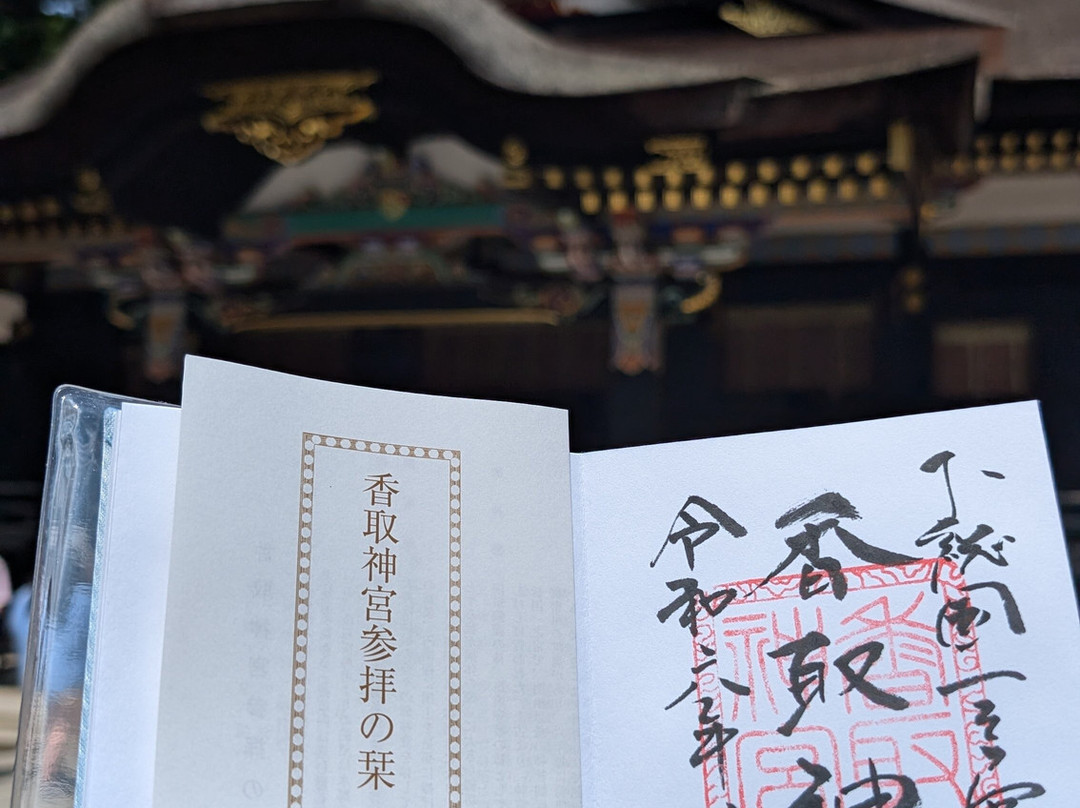 香取神宮参拝の栞
下総国一之宮
香取神
令和六年
香取
神宮